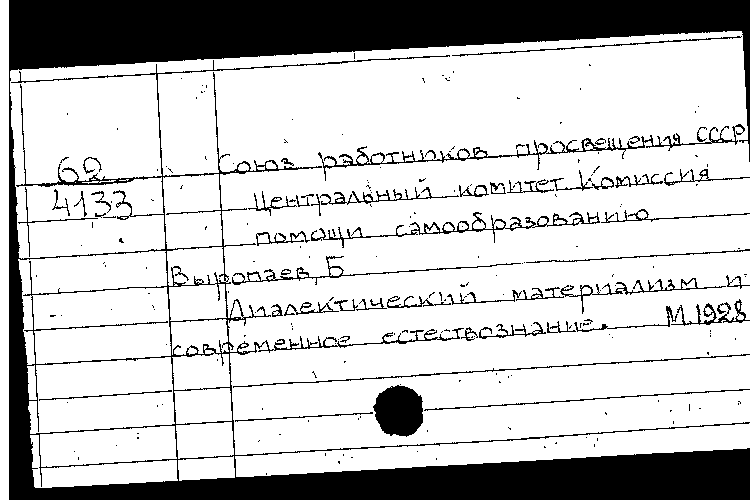 62
4133
Союз работников просвещения СССР
Центральный комитет Комиссия
помощи самообразованию
Выропаев, Б
Диалектический материализм и
современное естествознание. М.1928